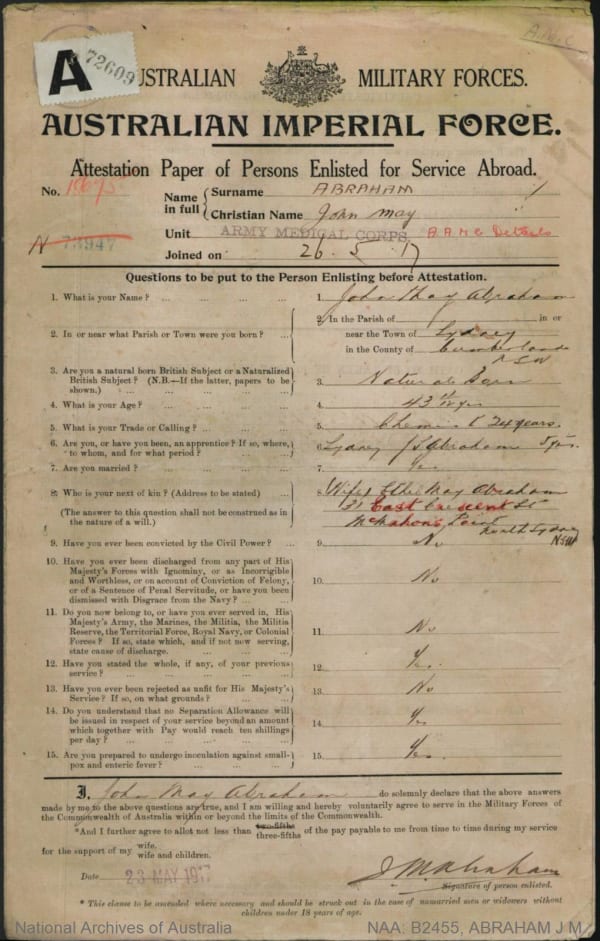 A 72609
A.M.C
AUSTRALIAN MILITARY FORCES.
AUSTRALIAN IMPERIAL FORCE.
Attestation Paper of Persons Enlisted for Service Abroad.
No. 18675
Name in full { Surname ABRAHAM
Christian Name John May
N 73947
Unit ARMY MEDICAL CORPS. A.A.M.C Details
Joined on 26. 5. 17
Questions to be put to the Person Enlisting before Attestation.
1. What is your Name? ... ... ... 1. John May Abraham
2. In or near what Parish or Town were you born? ... 2. In the Parish of in or
near the Town of Sydney
in the County of Cumberland
NSW
3. Are you a natural born British Subject or a Naturalized
British Subject? (N.B.—If the latter, papers to be
shown.) ... ... 3. Natural Born
4. What is your Age? ... ... ... 4. 43 yrs
5. What is your Trade or Calling? ... ... 5. Chemist 24 years.
6. Are you, or have you been, an apprentice? If so, where,
to whom, and for what period? ... 6. Sydney J S Abraham 5 yrs.
7. Are you married? ... ... ... 7. Yes
8. Who is your next of kin? (Address to be stated) ... 8. Wife, Ethel May Abraham
31 East Crescent St
(The answer to this question shall not be construed as in
the nature of a will.) McMahons Point
North Sydney
NSW
9. Have you ever been convicted by the Civil Power? ... 9. No
10. Have you ever been discharged from any part of His
Majesty's Forces with Ignominy, or as Incorrigible
and Worthless, or on account of Conviction of Felony,
or of a Sentence of Penal Servitude, or have you been
dismissed with Disgrace from the Navy? ... 10. No
11. Do you now belong to, or have you ever served in, His
Majesty's Army, the Marines, the Militia, the Militia
Reserve, the Territorial Force, Royal Navy, or Colonial
Forces? If so, state which, and if not now serving,
state cause of discharge. 11. No
12. Have you stated the whole, if any, of your previous
service? ... ... ... 12. Yes.
13. Have you ever been rejected as unfit for His Majesty's
Service? If so, on what grounds? ... 13. No
14. Do you understand that no Separation Allowance will
be issued in respect of your service beyond an amount
which together with Pay would reach ten shillings
per day? ... ... ... 14. Yes
15. Are you prepared to undergo inoculation against small-
pox and enteric fever? ... ... 15. Yes.
I, John May Abraham do solemnly declare that the above answers
made by me to the above questions are true, and I am willing and hereby voluntarily agree to serve in the Military Forces of
the Commonwealth of Australia within or beyond the limits of the Commonwealth.
*And I further agree to allot not less than two-fifths three-fifths of the pay payable to me from time to time during my service
for the support of my wife. wife and children.
Date 23 MAY 1917 J M Abraham
Signature of person enlisted.
* This clause to be amended where necessary and should be struck out in the case of unmarried men or widowers without
children under 18 years of age.
National Archives of Australia NAA: B2455, ABRAHAM J M